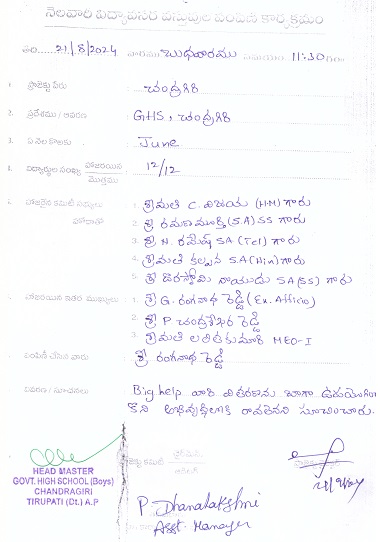 నెలవారి విద్యావసర వస్తువుల పంపిణి కార్యక్రమం
తేది.....21/8/2024 వారము బుధవారము సమయం 11:30
1. ప్రాజెక్టు పేరు : చంద్రగిరి
2. ప్రదేశము / : GHS, చంద్రగిరి
3. ఏ నెల కొరకు : June
4. విద్యార్థుల సంఖ్య హాజరయిన / మొత్తము : 12/12
5. హాజరైన కమిటీ సభ్యులు 1. శ్రీమతి C. విజయ (H.M) గారు
2. శ్రీ రమణమూర్తి (S.A) SS గారు
3. శ్రీ N. రమేష్ SA (Tel) గారు
4. శ్రీమతి కల్పన S.A (Hin) గారు
5. శ్రీ దొరస్వామి నాయుడు SA (SS) గారు
హాజరయిన ఇతర ముఖ్యులు : 1. శ్రీ G. రంగనాథ రెడ్డి (Ex. Afficio)
2. శ్రీ P చంద్రశేఖర రెడ్డి
3. శ్రీమతి లలిత కుమారి MEO-I
పంపిణీ చేసిన వారు : శ్రీ రంగనాథ రెడ్డి
వివరణ / సూచనలు : Big help వారి వితరణను బాగా
కొని సూచించారు.
HEAD MASTER
GOVT. HIGH SCHOOL (Boys)
CHANDRAGIRI
TIRUPATI (Dt.) A.P
P. Dhanalakshmi
Asst. Manager